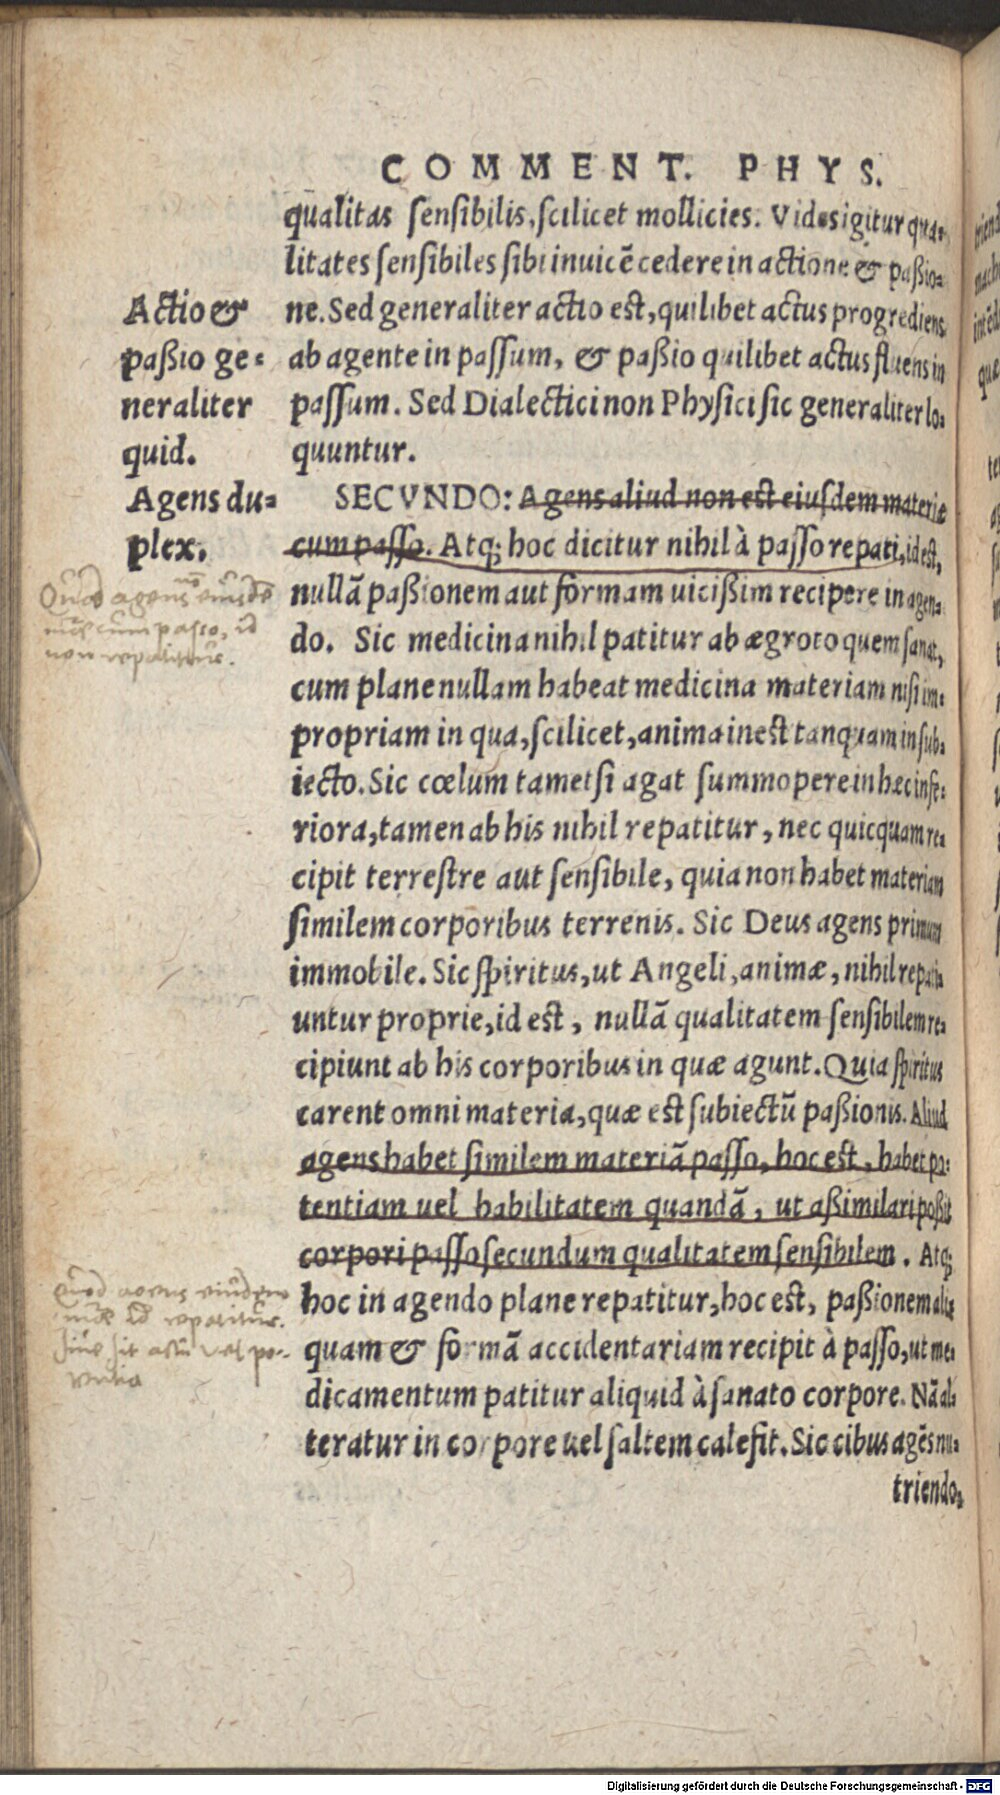 COMMENT. PHYS.
qualitas sensibilis, scilicet mollicies. Vides igitur qua-
litates sensibiles sibi inuicē cedere in actione & paßio-
ne. Sed generaliter actio est, quilibet actus progrediens
ab agente in passum, & paßio quilibet actus fluens in
passum. Sed Dialectici non Physici sic generaliter lo-
quuntur.
Actio &
paßio ge-
neraliter
quid.
SECVNDO: Agens aliud non est eiusdem materiæ
cum passo. Atq; hoc dicitur nihil à passo repati, id est,
nullā paßionem aut formam uicißim recipere in agen-
do. Sic medicina nihil patitur ab ægroto quem sanat,
cum plane nullam habeat medicina materiam nisi im-
propriam in qua, scilicet, anima inest tanquam in sub-
iecto. Sic cœlum tametsi agat summopere in hæc infe-
riora, tamen ab his nihil repatitur, nec quicquam re-
cipit terrestre aut sensibile, quia non habet materiam
similem corporibus terrenis. Sic Deus agens primum
immobile. Sic spiritus, ut Angeli, animæ, nihil repati-
untur proprie, id est, nullā qualitatem sensibilem re-
cipiunt ab his corporibus in quæ agunt. Quia spiritus
carent omni materia, quæ est subiectū paßionis. Aliud
agens habet similem materiā passo, hoc est, habet po-
tentiam uel habilitatem quandā, ut aßimilari poßit
corpori passo secundum qualitatem sensibilem. Atq;
hoc in agendo plane repatitur, hoc est, paßionem ali-
quam & formā accidentariam recipit à passo, ut me-
dicamentum patitur aliquid à sanato corpore. Nā al-
teratur in corpore uel saltem calefit. Sic cibus agēs nu-
triendo,
Agens du-
plex.
Quod agens eiusdē
cum passo, id
non repatitur.
Quod agens eiusdem
id repatitur.
siue sit actu vel po-